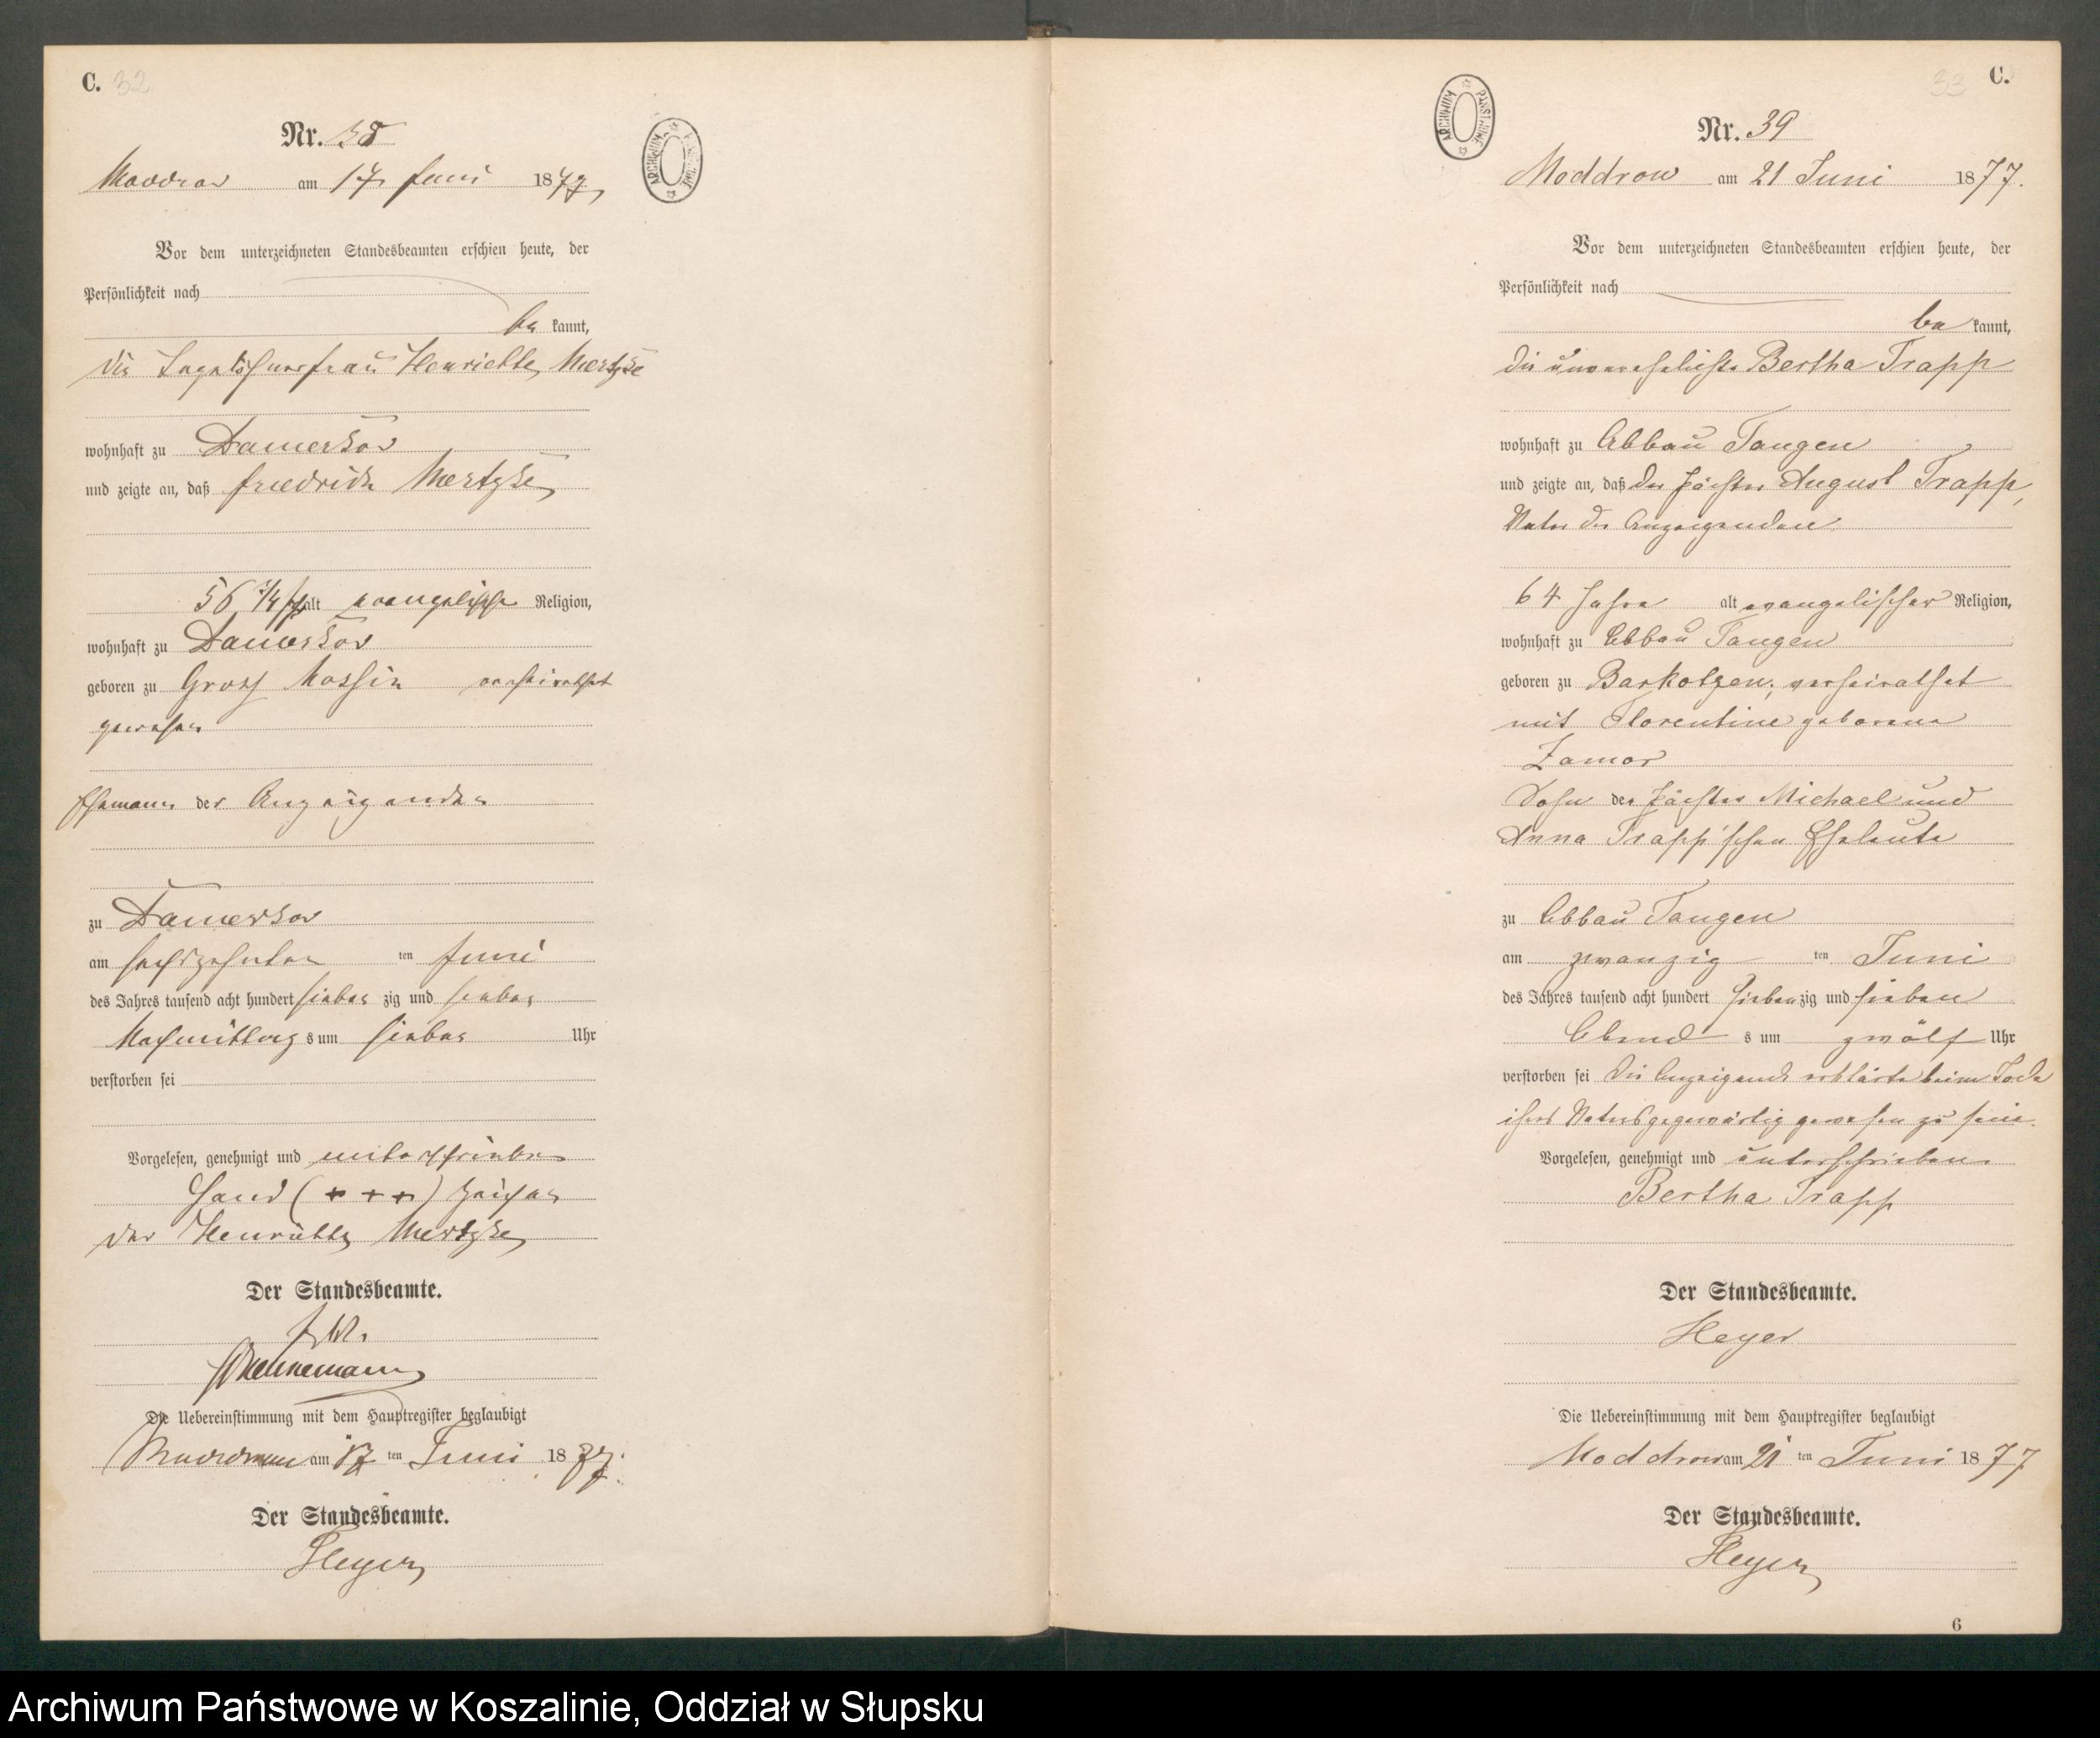 C. 32
Nr. 38
Moddrow am 17 Juni 1877
Vor dem unterzeichneten Standesbeamten erschien heute, der
Persönlichkeit nach
be kannt,
die Henriette Mertzke
wohnhaft zu Damerkow
und zeigte an, daß Friedrich Mertzke
56 1/4 J alt evangelische Religion,
wohnhaft zu Damerkow
geboren zu Gross Massin verheirathet
gewesen
Ehemann der Anzeigenden
zu Damerkow
am sechszehnten ten Juni
des Jahres tausend acht hundert sieben zig und sieben
Nachmittag s um sieben Uhr
verstorben sei
Vorgelesen, genehmigt und unterschrieben
Hand (+ + +) Zeichen
der Henriette Mertzke
Der Standesbeamte.
Die Uebereinstimmung mit dem Hauptregister beglaubigt
Moddrow am 17 ten Juni 1877.
Der Standesbeamte.
Heyer
ARCHIWUM PAŃSTWOWE
33 C.
Nr. 39
Moddrow am 21 Juni 1877.
Vor dem unterzeichneten Standesbeamten erschien heute, der
Persönlichkeit nach
be kannt,
die unverehelichte Bertha Trapp
wohnhaft zu Abbau Tangen
und zeigte an, daß der Pächter August Trapp,
Vater der Anzeigenden
64 Jahre alt evangelischer Religion,
wohnhaft zu Abbau Tangen
geboren zu Barkotzen, verheirathet
mit Florentine geborene
Zamor
Sohn der Pächter Michael und
Anna Trapp'schen Eheleute
zu Abbau Tangen
am zwanzig ten Juni
des Jahres tausend acht hundert sieben zig und sieben
Abend s um zwölf Uhr
verstorben sei Die Anzeigende erklärte beim Tode
ihres Vaters gegenwärtig gewesen zu sein.
Vorgelesen, genehmigt und unterschrieben
Bertha Trapp
Der Standesbeamte.
Heyer
Die Uebereinstimmung mit dem Hauptregister beglaubigt
Moddrow am 21 ten Juni 1877
Der Standesbeamte.
Heyer
6
ARCHIWUM PAŃSTWOWE
Archiwum Państwowe w Koszalinie, Oddział w Słupsku